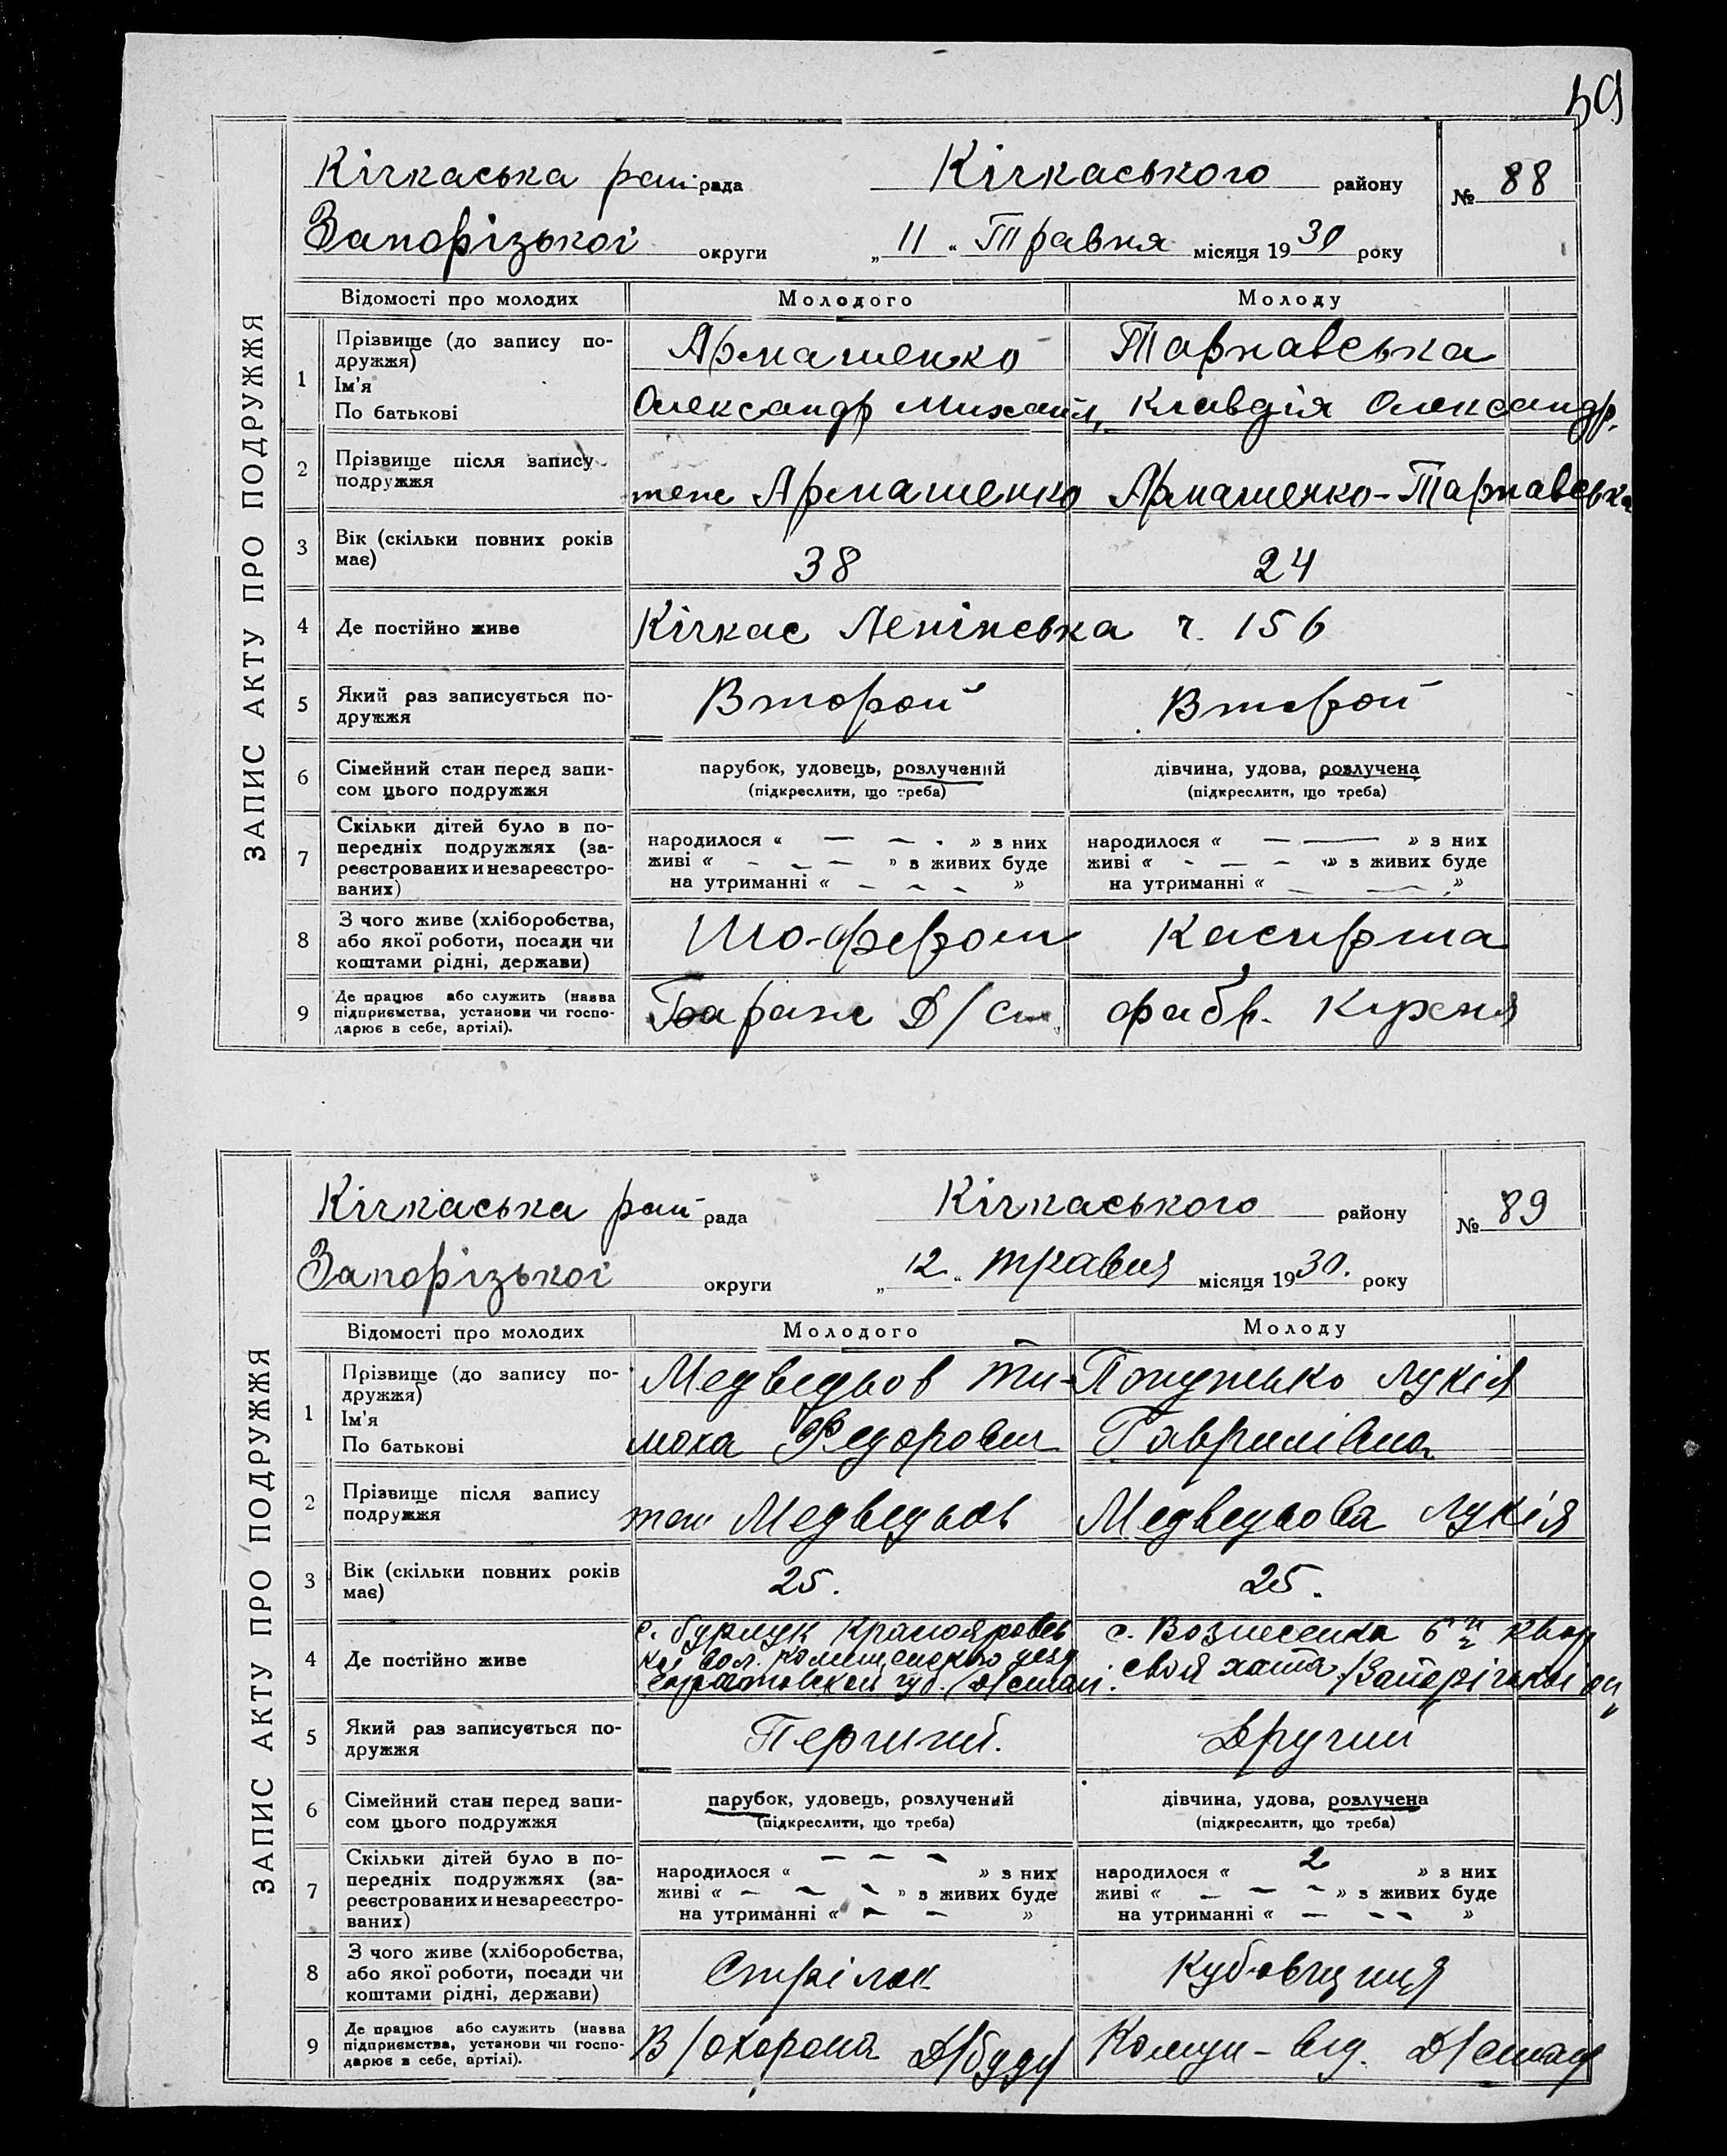 59
ЗАПИС АКТУ ПРО ПОДРУЖЖЯ
Кічкаська рай рада Кічкаського району № 88
Запорізької округи „ 11 " Травня місяця 19 30 року
Відомості про молодих Молодого Молоду
1 Прізвище (до запису по-
дружжя)
Ім'я
По батькові
Армашенко Тарнавська
Олександр Михайл. Клавдія Олександр.
2 Прізвище після запису
подружжя
теж Армашенко Армашенко-Тарнавська
3 Вік (скільки повних років
має)
38 24
4 Де постійно живе Кічкас Ленінська ч. 156
5 Який раз записується по-
дружжя
Второй Второй
6 Сімейний стан перед запи-
сом цього подружжя
парубок, удовець, розлучений дівчина, удова, розлучена
(підкреслити, що треба) (підкреслити, що треба)
7 Скільки дітей було в по-
передніх подружжях (за-
реєстрованих и незареєстро-
ваних)
народилося « — — - » з них народилося « — — » з них
живі « - - — » з живих буде живі « - — - » з живих буде
на утриманні « - - - » на утриманні « - — »
8 З чого живе (хліборобства,
або якої роботи, посади чи
коштами рідні, держави)
Шофером Касирша
9 Де працює або служить (назва
підприємства, установи чи госпо-
дарює в себе, артілі).
Гараж Д/ст. фабр. Кухня
ЗАПИС АКТУ ПРО ПОДРУЖЖЯ
Кічкаська рай рада Кічкаського району № 89
Запорізької округи „ 12 " травня місяця 19 30. року
Відомості про молодих Молодого Молоду
1 Прізвище (до запису по-
дружжя)
Ім'я
По батькові
Медведьов Ти- Лукія
моха Федорович Гаврилівна
2 Прізвище після запису
подружжя
теж Медведьов Медведьова Лукія
3 Вік (скільки повних років
має)
25. 25.
4 Де постійно живе
с. Бурлук Краснояровсь с. Вознесенка 6
кої вол. Камишенского уезд своя хата /Запорізької ок
Саратовской губ.
5 Який раз записується по-
дружжя
Перший. Другий
6 Сімейний стан перед запи-
сом цього подружжя
парубок, удовець, розлучений дівчина, удова, розлучена
(підкреслити, що треба) (підкреслити, що треба)
7 Скільки дітей було в по-
передніх подружжях (за-
реєстрованих и незареєстро-
ваних)
народилося « — — - » з них народилося « 2 » з них
живі « - - - » з живих буде живі « - — - » з живих буде
на утриманні « - - » на утриманні « — - - »
8 З чого живе (хліборобства,
або якої роботи, посади чи
коштами рідні, держави)
Стрілок Кубовщиця
9 Де працює або служить (назва
підприємства, установи чи госпо-
дарює в себе, артілі).
В/охорона Д/буду Комун-від.